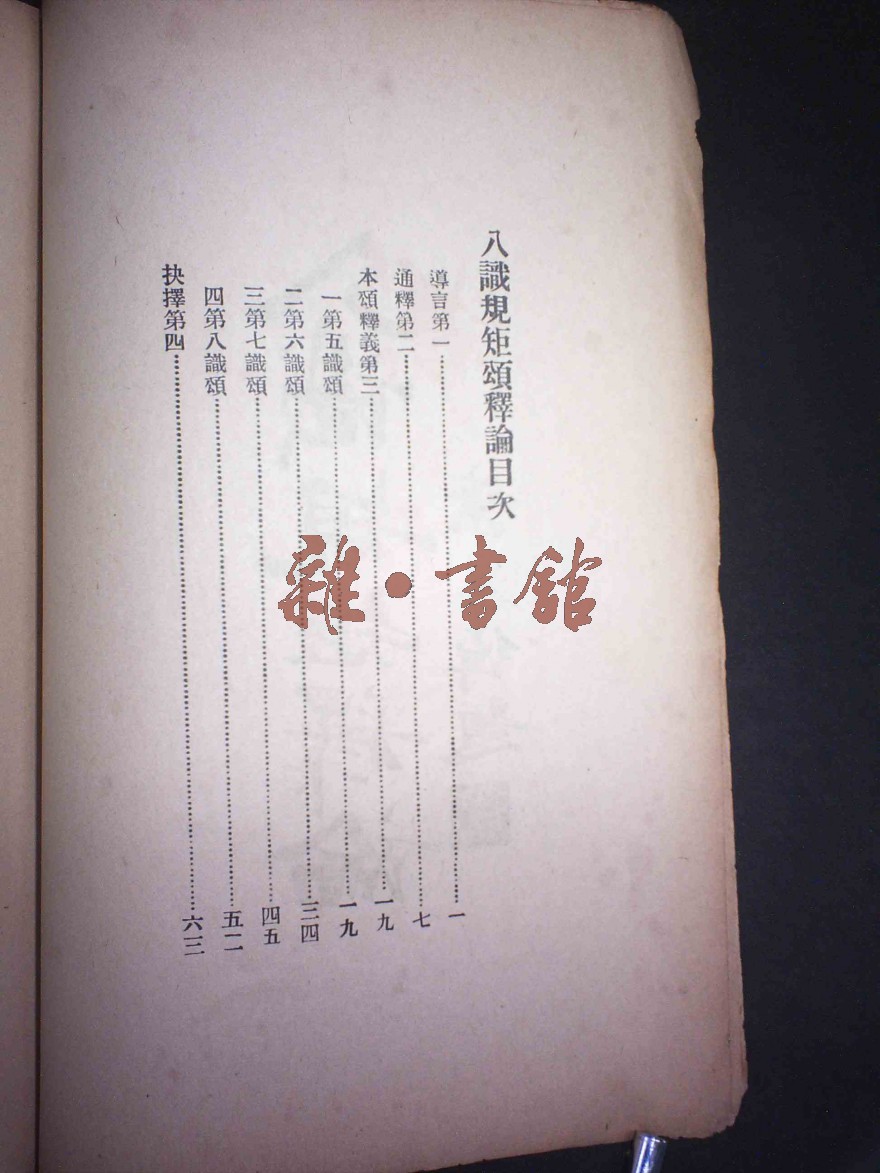 八識規矩頌釋論目次
導言第一……一
通釋第二……七
本頌釋義第三……一九
一第五識頌……一九
二第六識頌……三四
三第七識頌……四五
四第八識頌……五二
抉擇第四……六三
雜·書館